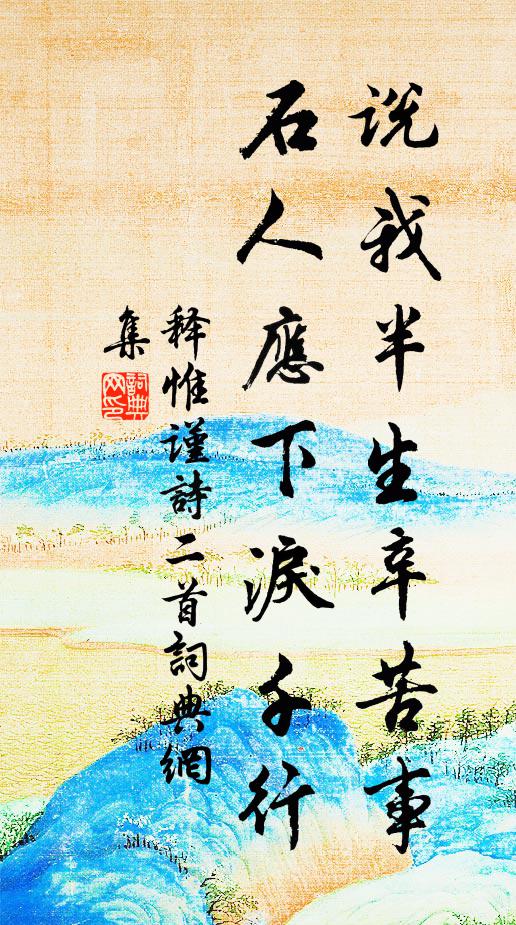 説我半生辛苦事
石人應下淚千行
释惟謹詩二首詞典網
集
詞典
网印